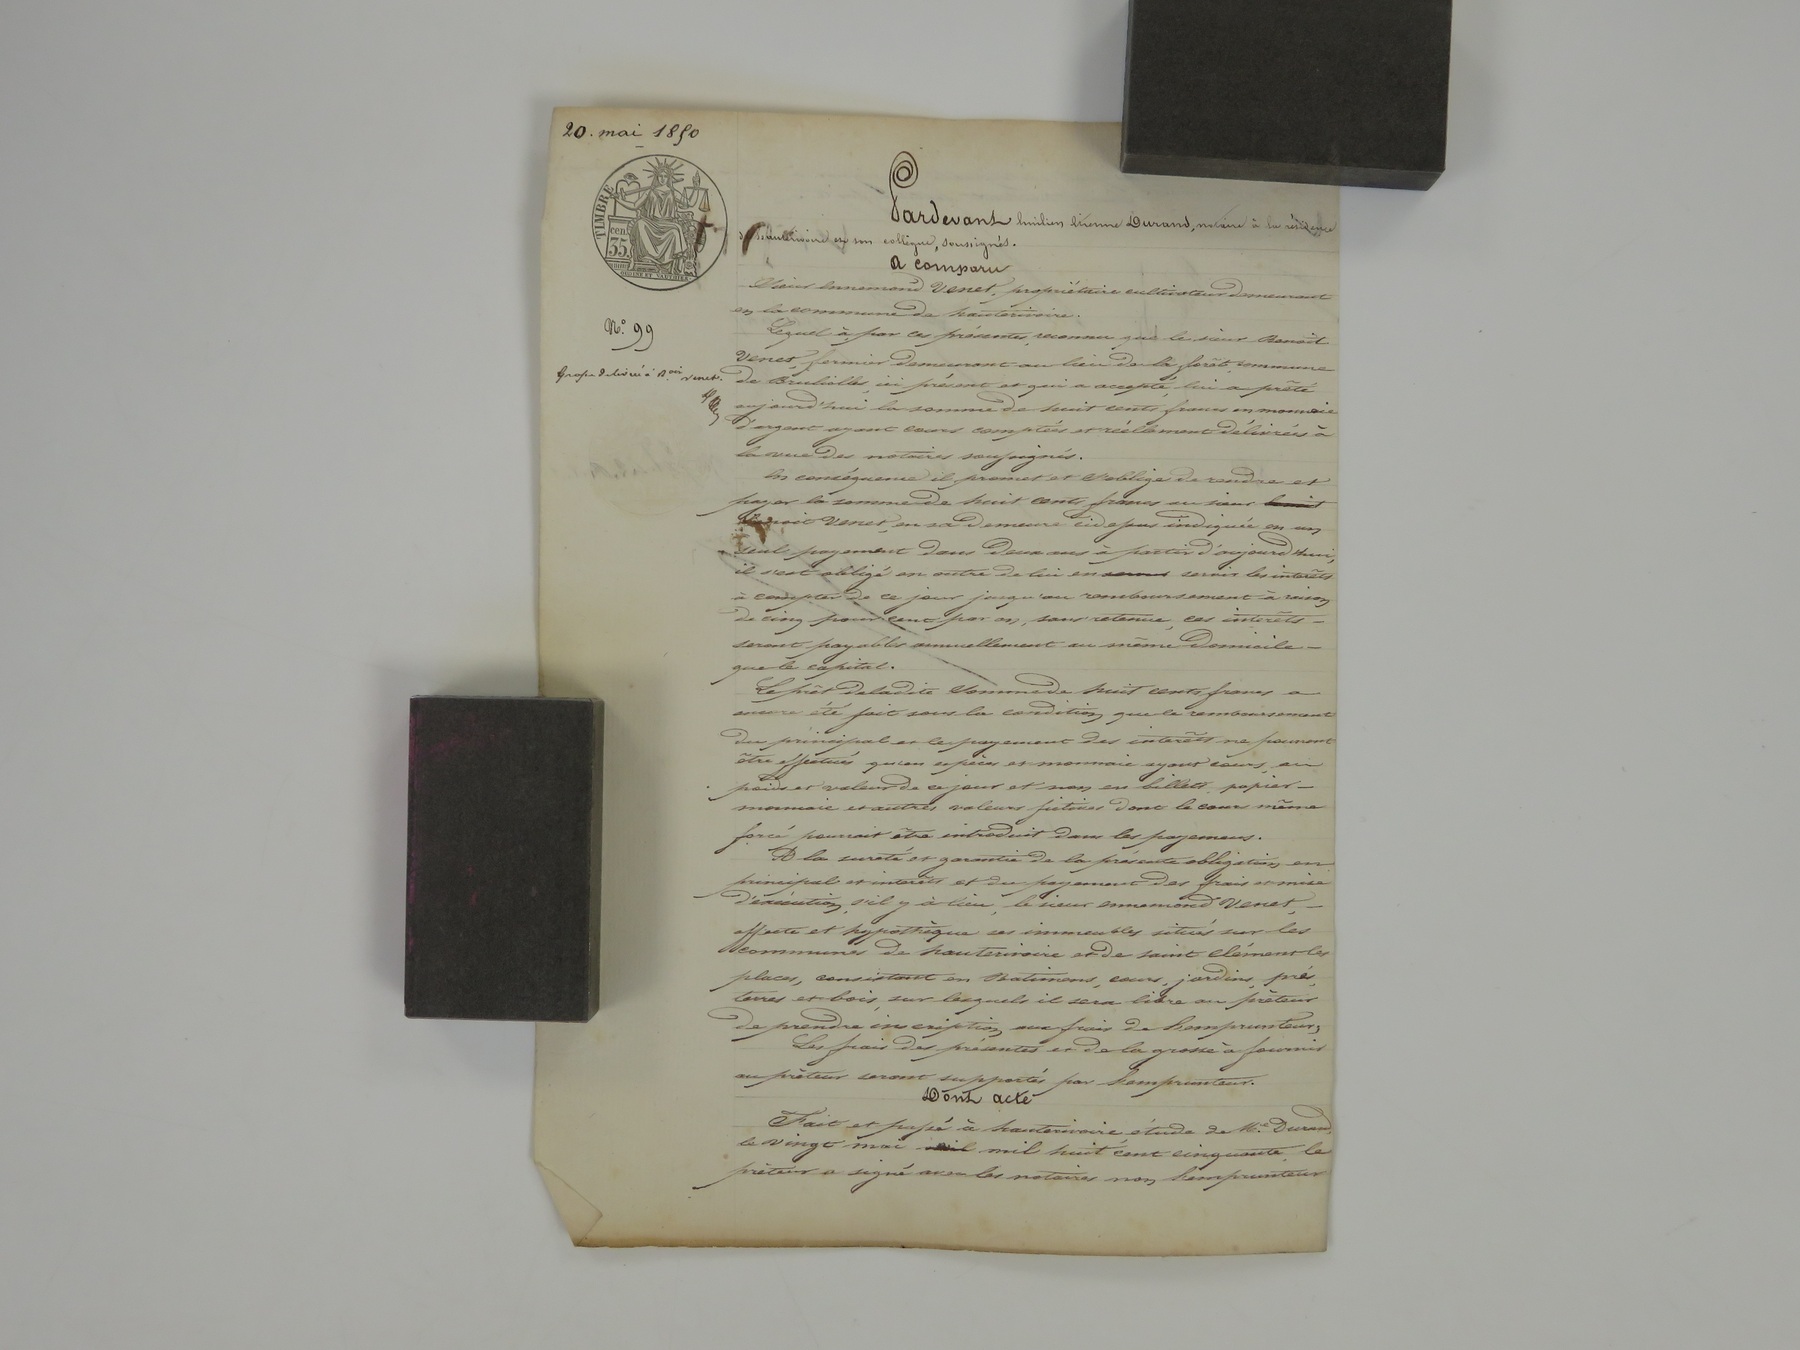 20. mai 1850
TIMBRE
cen.
35
N.° 99
Grosse délivrée à B.oit Venet.
Pardevant Durand, notaire à la résidence
d'hauterivoire et son collègue, soussignés.
a comparu
Sieur Ennemond Venet, propriétaire cultivateur demeurant
en la commune de hauterivoire.
Lequel à par ces présentes reconnu que le sieur Benoît
Venet, fermier demeurant au lieu de la forêt commune
de Brullioles, ici présent et qui a accepté, lui a prêté
aujourd'hui la somme de huit cents francs en monnaie
d'argent ayant cours comptés et réellement délivrés à
la vue des notaires soussignés.
En conséquence il promet et s'oblige de rendre et
payer la somme de huit cents francs au sieur
Benoit Venet, en sa demeure cidessus indiquée en un
seul payement dans deux ans à partir d'aujourd'hui,
il s'est obligé en outre de lui en servir les intérêts
à compter de ce jour jusqu'au remboursement à raison
de cinq pour cent par an, sans retenue, ces intérêts -
seront payables annuellement au même domicile -
que le capital.
Le prêt de ladite somme de huit cents francs a
encore été fait sous la condition que le remboursement
du principal et le payement des intérêts ne pourront
être effectués qu'en espèces et monnaie ayant cours, au
poids et valeur de ce jour et non en billets, papier -
monnaie et autres valeurs fictives dont le cours même
forcé pourrait être introduit dans les payemens.
A la sureté et garantie de la présente obligation en
principal et intérêts et du payement des frais et mise
d'exécution, s'il y à lieu, le sieur ennemond Venet, -
affecte et hypothèque ses immeubles situés sur les
communes de hauterivoire et de saint Clément les
places, consistant en Batimens, cours, jardins, prés,
terres et bois, sur lesquels il sera libre au prêteur
de prendre inscription aux frais de l'emprunteur,
Les frais des présentes et de la grosse à fournir
au prêteur seront supportés par l'emprunteur.
Dont acte
Fait et passé à hauterivoire étude de M.e Durand
le vingt mai mil huit cent cinquante, le
prêteur a signé avec les notaires non l'emprunteur